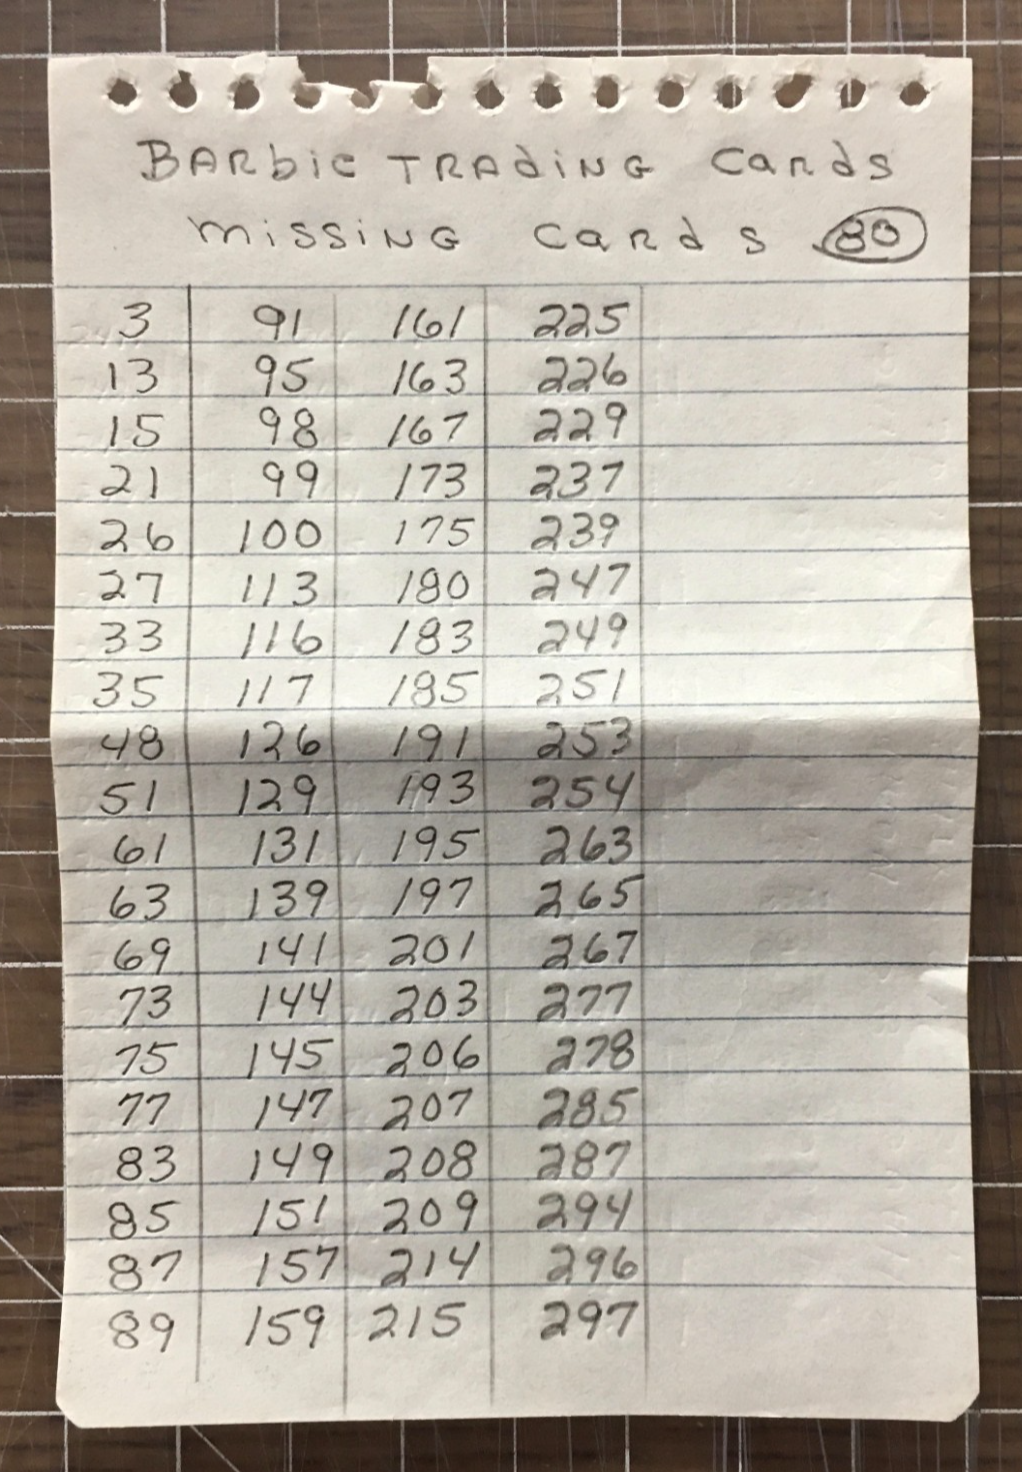 BARbie TRAdiNG Cards
missiNG Cards 80
3 91 161 225
13 95 163 226
15 98 167 229
21 99 173 237
26 100 175 239
27 113 180 247
33 116 183 249
35 117 185 251
48 126 191 253
51 129 193 254
61 131 195 263
63 139 197 265
69 141 201 267
73 144 203 277
75 145 206 278
77 147 207 285
83 149 208 287
85 151 209 294
87 157 214 296
89 159 215 297